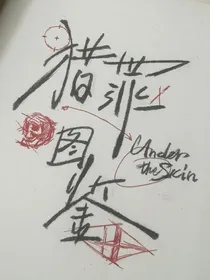 猎罪
图
鉴
Under
the Skin